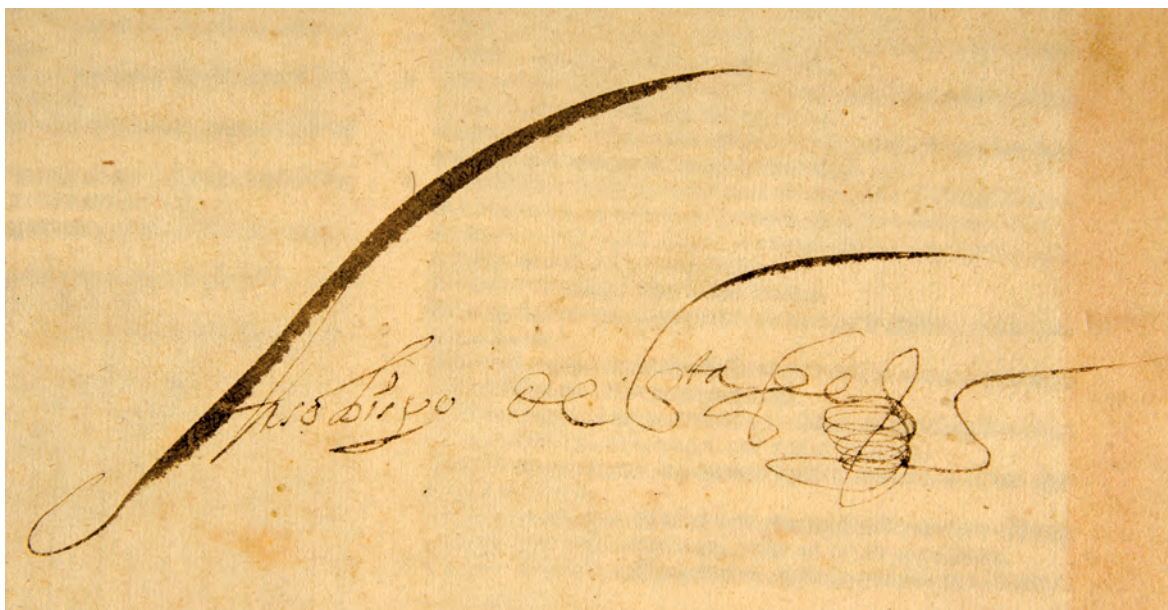 Arçobispo de Sta fe